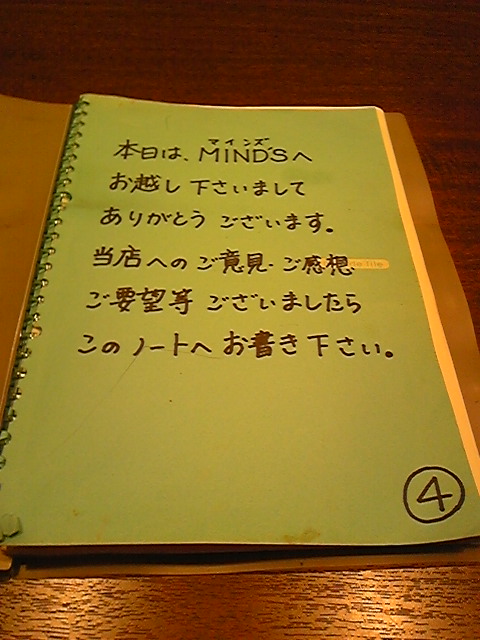 マインズ
本日は、MIND'Sへ
お越し下さいまして
ありがとうございます。
当店へのご意見・ご感想
ご要望等ございましたら
このノートへお書き下さい。
④